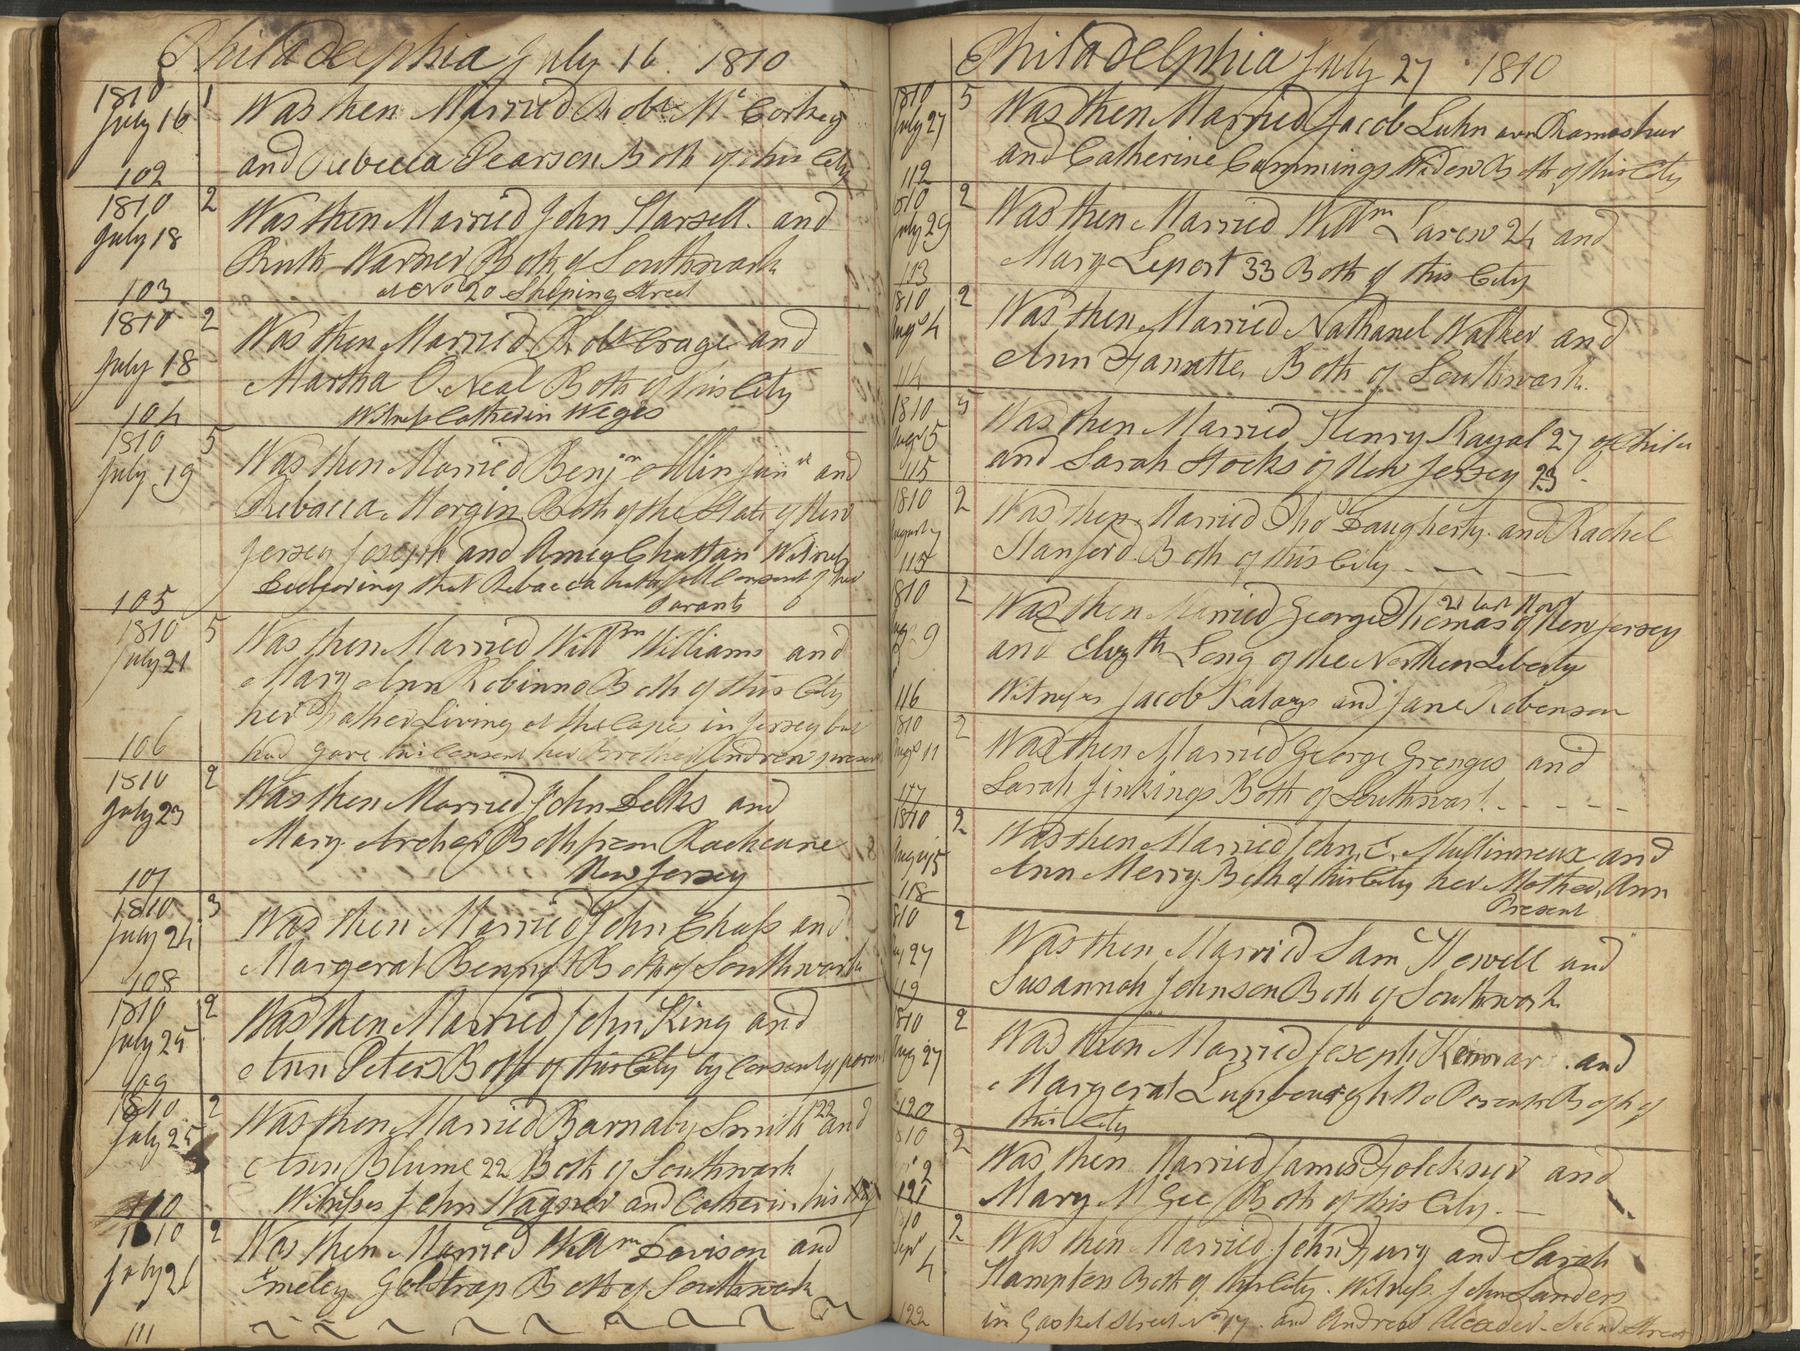 Philadelphia July 16. 1810
1810
July 16
1
Was then Married Robt Mc Corkey
and Rebecca Pearson Both of this City
102
1810
July 18
2
Was then Married John Harsell. and
Ruth Warner Both of Southwark
at No 20 Shiping Street
103
1810
July 18
2
Was then Married Robt Crage and
Martha O. Neal Both of this City
Witness Catherin Weges
104
1810
July 19
5
Was then Married Benjm Allin Junr and
Rebacca Morgin Both of the State of New
Jersey Joseph and Amey Chattan Witness
that Rebacca hath full Consent of her
Parants
105
1810
July 21
5
Was then Married Willm Williams and
Mary Ann Robinno Both of this City
her Father Living at the Capes in Jersey but
had gave his Consent her Brother Andrew present
106
1810
July 23
2
Was then Married John Selks and
Mary Archer Both from
New Jersey
107
1810
July 24
3
Was then Married John Chass and
Margerat Bennet Both of Southwark
108
1810
July 25
2
Was then Married John King and
Ann Peters Both of this City by Consent of parents
109
1810
July 25
2
Was then Married Barnaby Smith 22 and
Ann Blume 22 Both of Southwark
Witnesses John Wagner and Catherin his
110
1810
July 26
2
Was then Married Willm Davison and
Emeley Goldtrap Both of Southwark
111
Philadelphia July 27 1810
1810
July 27
5
Was then Married Jacob Luhn
and Catherine Cummings Widow Both of this City
112
1810
July 29
2
Was then Married Willm Larew 24 and
Mary Leport 33 Both of this City
113
1810
Augt 4
2
Was then Married Nathanel Walker and
Ann Hanatte Both of Southwark.
114
1810
Augt 5
5
Was then Married Henry Rayal 27 of Phila
and Sarah Hocks of New Jersey 23
115
1810
August 7
2
Was then Married Tho Daugherty. and Rachel
Stanford Both of this City
115
1810
Aug 9
2
21 last Novr
Was then Married George Thomas of New Jersey
and Elizth Long of the Northen Liberty
Witnesses Jacob and Jane Robenson
116
1810
Augst 11
2
Was then Married George Grenges and
Sarah Jinkings Both of Southwark
117
1810
Augt 15
2
Was then Married John C. Mullinneux and
Ann Merry Both of this City her Mother, Ann
Present
118
1810
Aug 27
2
Was then Married Saml Hewell and
Susannah Johnson Both of Southwark
119
1810
Aug 27
2
Was then Married Joseph Kennard. and
Margerat No Parents Both of
this City
120
1810
2
2
Was then Married James Folckner and
Mary Mc Gee Both of this City.
121
1810
Sept 4
2
Was then Married John Fury and Sarah
Hampton Both of this City. Witness. John Sanders
in Gaskel Street No 17. and Andrew Second Street
122